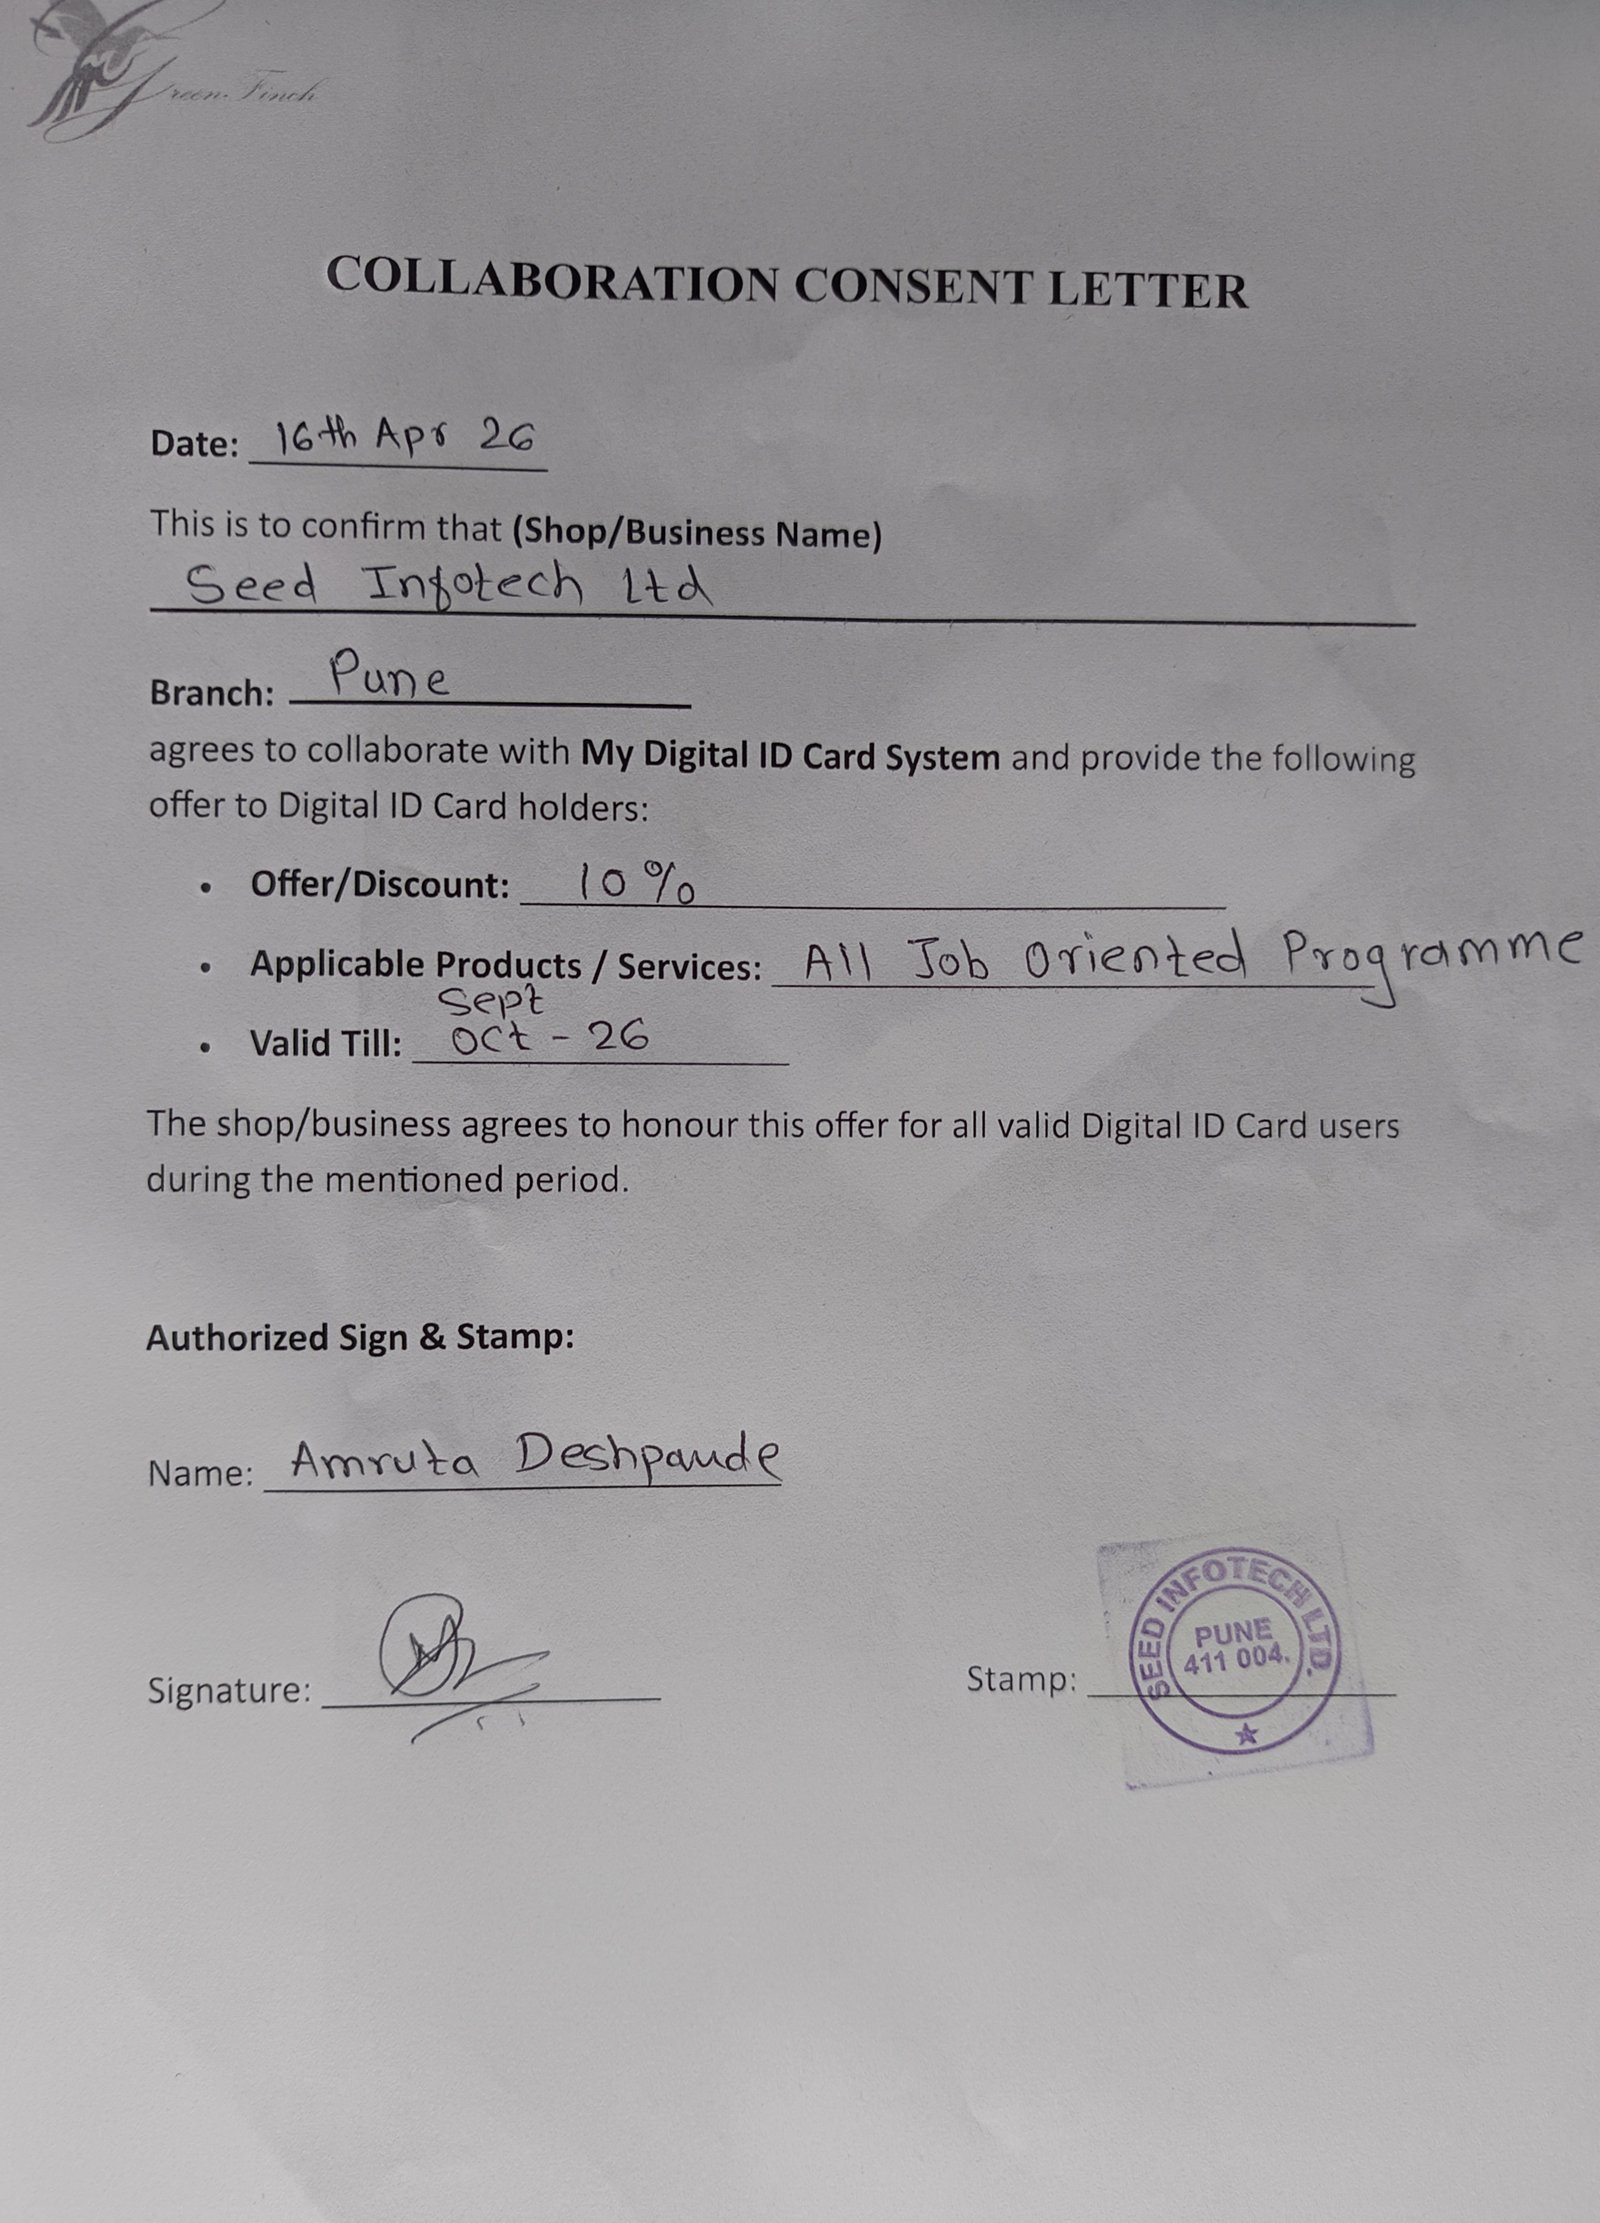 Green Finch
COLLABORATION CONSENT LETTER
Date: 16th Apr 26
This is to confirm that (Shop/Business Name)
Seed Infotech Ltd
Branch: Pune
agrees to collaborate with My Digital ID Card System and provide the following
offer to Digital ID Card holders:
• Offer/Discount: 10%
• Applicable Products / Services: All Job Oriented Programme
Sept
• Valid Till: Oct - 26
The shop/business agrees to honour this offer for all valid Digital ID Card users
during the mentioned period.
Authorized Sign & Stamp:
Name: Amruta Deshpande
Signature:
Stamp:
SEED INFOTECH LTD.
PUNE
411 004.